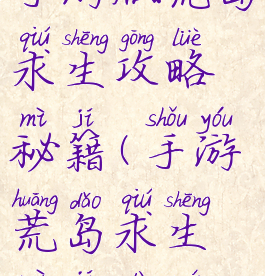 qiú shēng gōng lüè
求生攻略
mì jí shǒu yóu
秘籍(手游
huāng dǎo qiú shēng
荒岛求生